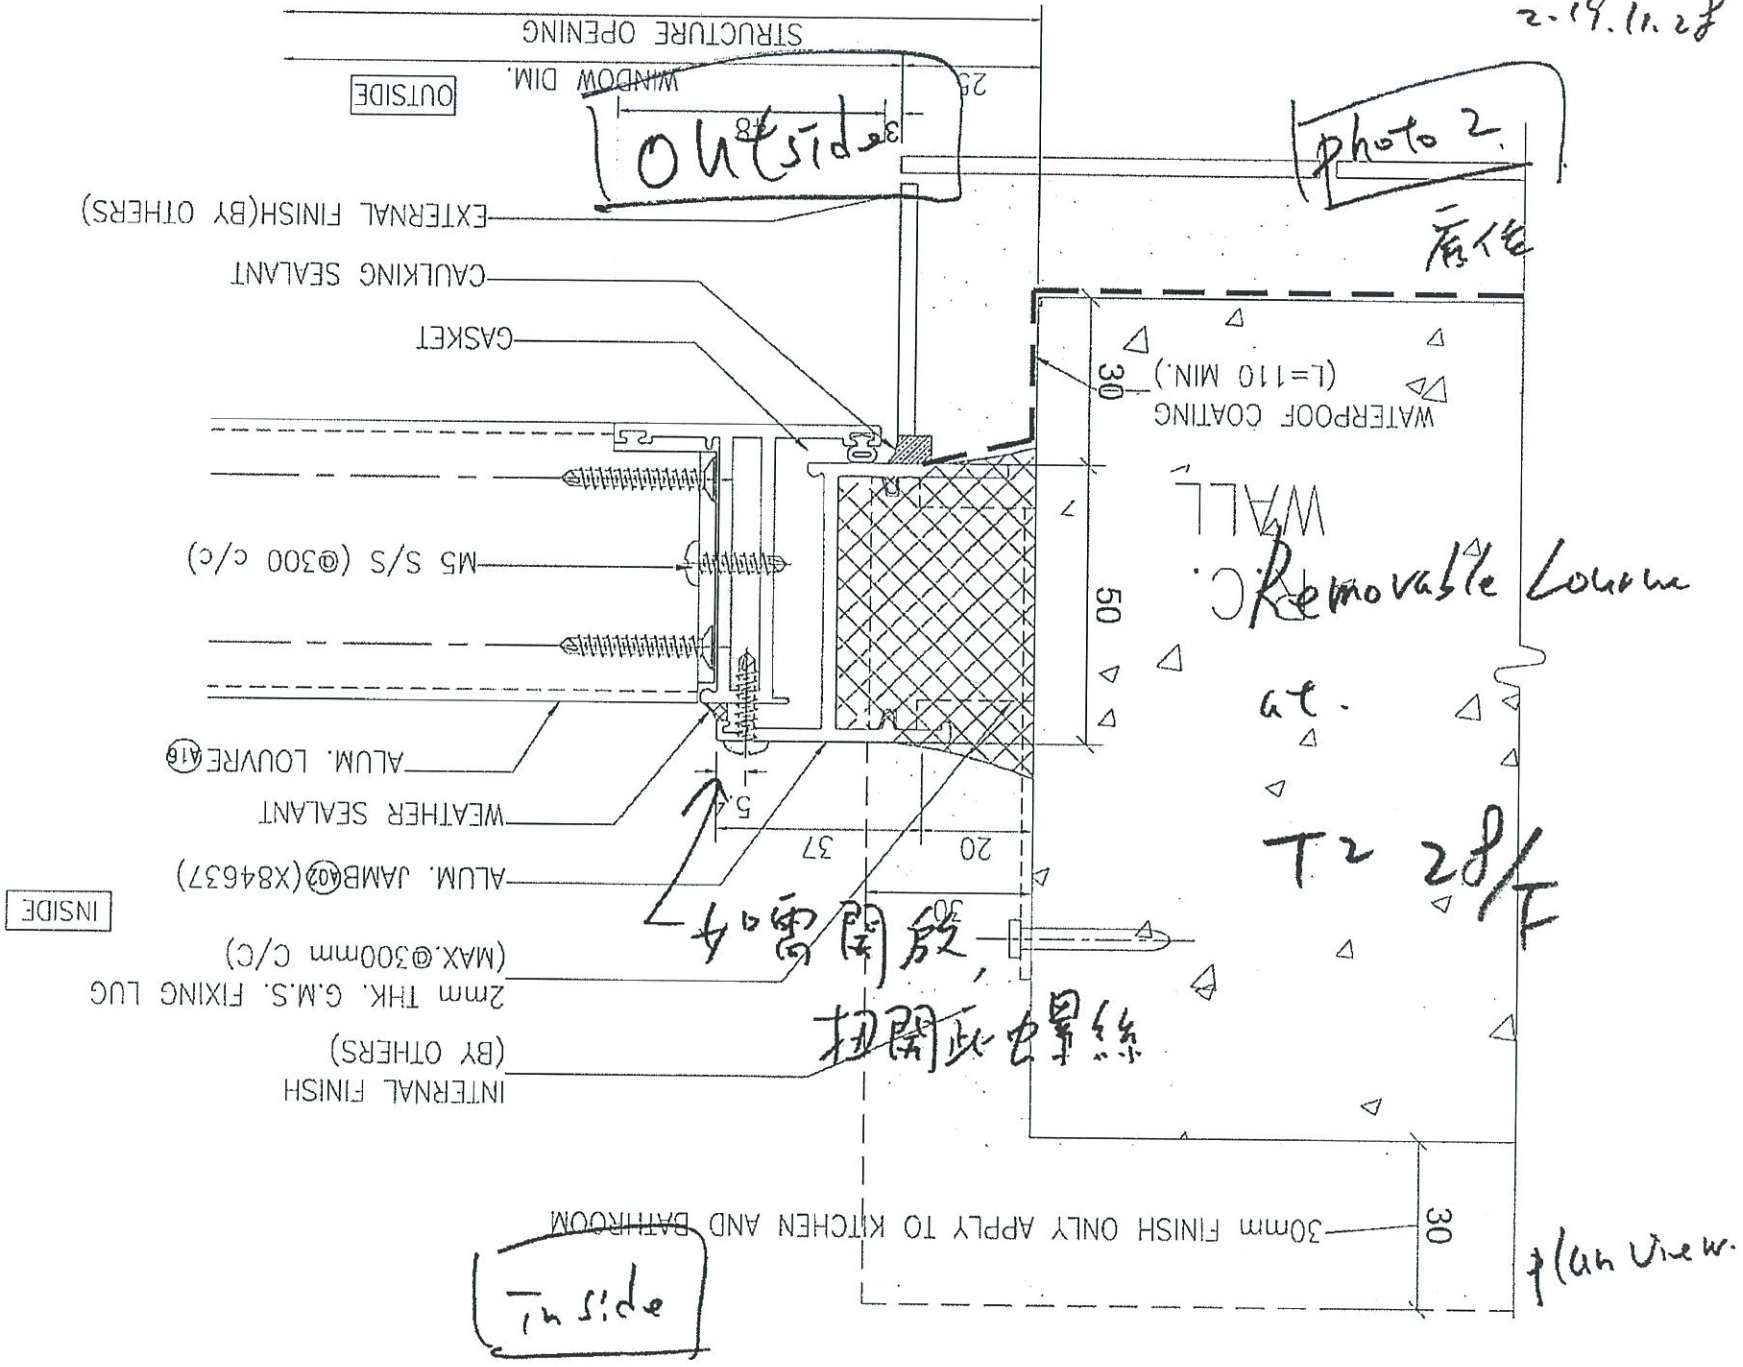 2.19.11.28
STRUCTURE OPENING
WINDOW DIM.
25
OUTSIDE
48
3
Outside
photo 2.
EXTERNAL FINISH(BY OTHERS)
CAULKING SEALANT
GASKET
30
WATERPOOF COATING
(L=110 MIN.)
R.C.
WALL
7
50
M5 S/S (@300 c/c)
Removable Louvre
at.
T2 28/F
ALUM. LOUVRE A16
WEATHER SEALANT
ALUM. JAMB A02 (X84637)
5.
37
20
30
INSIDE
如需開啟,
扭開此螺絲
2mm THK. G.M.S. FIXING LUG
(MAX.@300mm C/C)
INTERNAL FINISH
(BY OTHERS)
30mm FINISH ONLY APPLY TO KITCHEN AND BATHROOM
30
plan view.
Inside